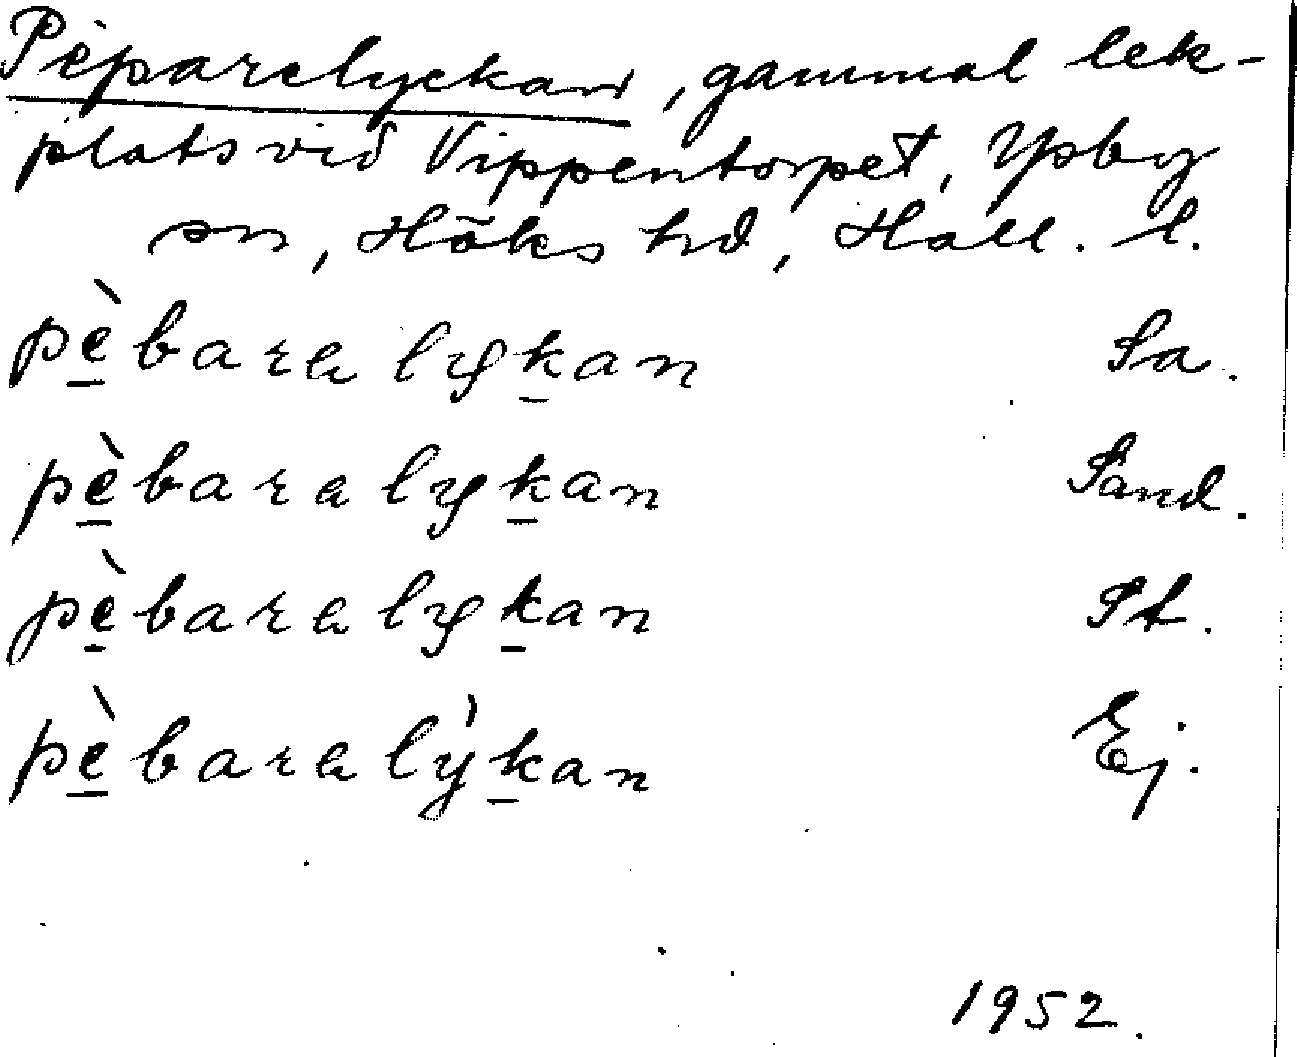 Pèparelyckan, gammal lek-
plats vid Vippentorpet, Ysby
sn, Höks hd, Hall. l.
pè̱baralyḵan Sa.
pè̱baralyḵan Sand.
pè̱baralyḵan St.
pè̱baralỳḵan Ej.
1952.